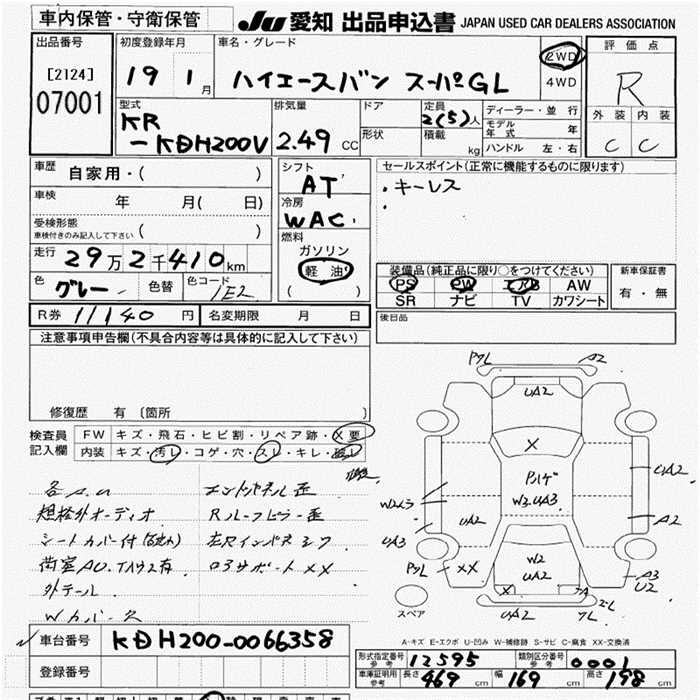 車内保管・守衛保管
JU 愛知 出品申込書 JAPAN USED CAR DEALERS ASSOCIATION
出品番号
[2124]
07001
初度登録年月
19 年 1 月
車名・グレード
ハイエースバン スーパーGL
2WD
4WD
評価点
R
外装 内装
C C
型式
KR
-KDH200V
排気量
2.49 CC
ドア
形状
定員
2(5)人
積載
kg
ディーラー・並行
モデル年式 年
ハンドル 左・右
車歴
自家用・( )
車検
年 月( 日)
受検形態
車検付きのみ記入して下さい ( )
走行
29万2千410km
色
グレー
色替
色コード
1E2
シフト
AT
冷房
WAC
燃料
ガソリン
軽油
( )
セールスポイント(正常に機能するものに限ります)
・キーレス
・
装備品(純正品に限り○をつけてください)
PS PW エアB AW
SR ナビ TV カワシート
新車保証書
有・無
R券 11140 円
名変期限 月 日
後日品
注意事項申告欄(不具合内容等は具体的に記入して下さい)
修復歴 有 〔箇所 〕
検査員
記入欄
FW キズ・飛石・ヒビ割・リペア跡・X要
内装 キズ・汚レ・コゲ・穴・スレ・キレ・
規格外オーディオ
シートカバー付
外テール
エンドパネル歪
Rルーフピラー歪
車台番号 KDH200-0066358
登録番号
A2
UA2
X
Pハゲ
W2.UA3
UA2
A2
W2
UA2
UA3
XX
A3
U2
X
UA2
スペア
A-キズ E-エクボ U-凹み W-補修跡 S-サビ C-腐食 XX-交換済
形式指定番号 参考 12595
類別区分番号 参考 0001
車庫証明用 参考 長さ 469 cm 幅 169 cm 高さ 198 cm